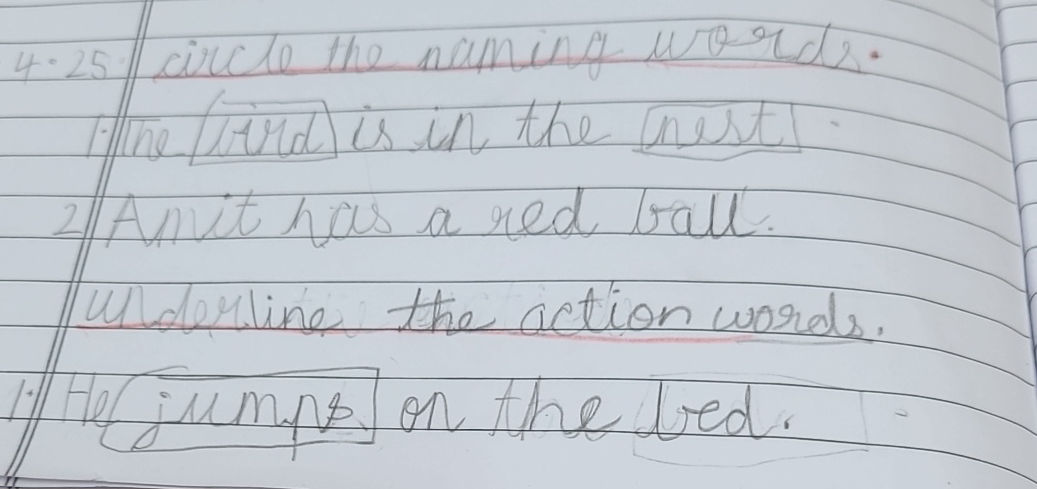 4.25 circle the naming words.
1. The bird is in the nest.
2 Amit has a red ball.
underline the action words.
1. He jumps on the bed.